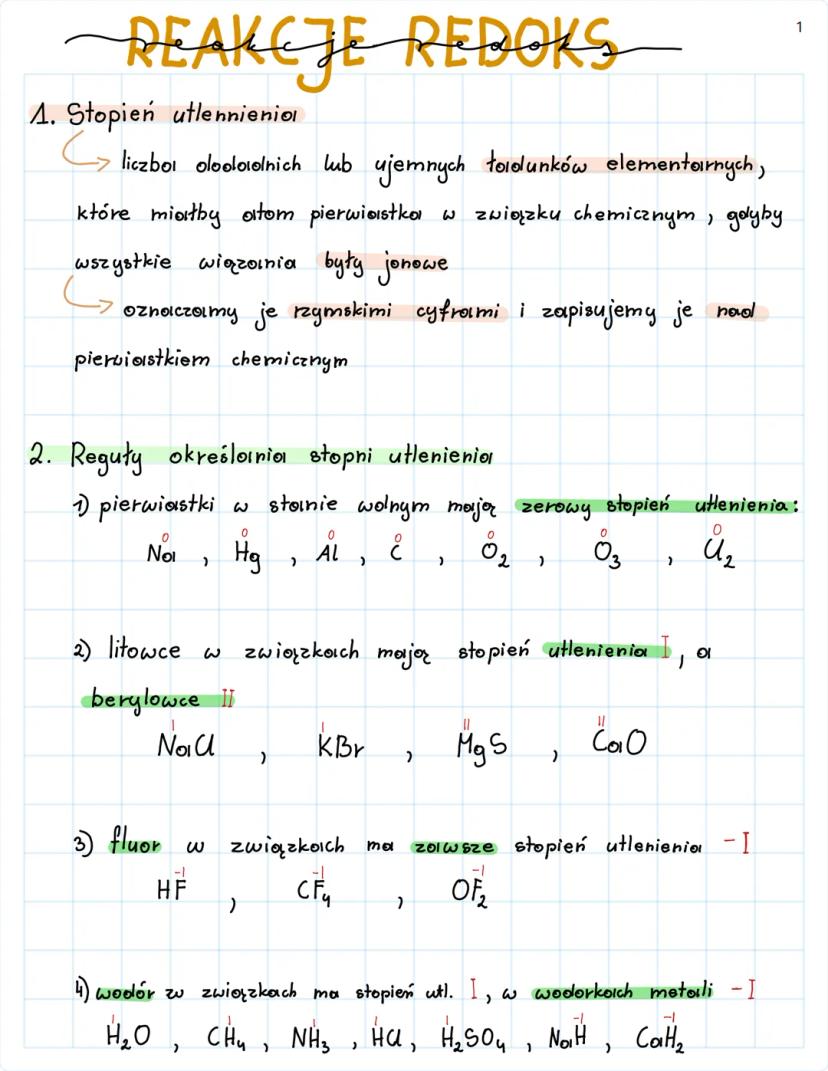 1
REAKCJE REDOKS
reakcje redoks
1. Stopień utlennienia
liczba dodadnich lub ujemnych ładunków elementarnych,
które miałby atom pierwiastka w związku chemicznym, gdyby
wszystkie wiązania były jonowe
oznaczamy je rzymskimi cyframi i zapisujemy je nad
pierwiastkiem chemicznym
2. Reguły określania stopni utlenienia
1) pierwiastki w stanie wolnym mają zerowy stopień utlenienia:
0 0 0 0 0 0 0
Na , Hg , Al , C , O₂ , O₃ , Cl₂
2) litowce w związkach mają stopień utlenienia I, a
berylowce II
I I II II
NaCl , KBr , MgS , CaO
3) fluor w związkach ma zawsze stopień utlenienia -I
-I -I -I
HF , CF₄ , OF₂
4) wodór w związkach ma stopień utl. I, w wodorkach metali -I
I I I I I -I -I
H₂O , CH₄ , NH₃ , HCl , H₂SO₄ , NaH , CaH₂